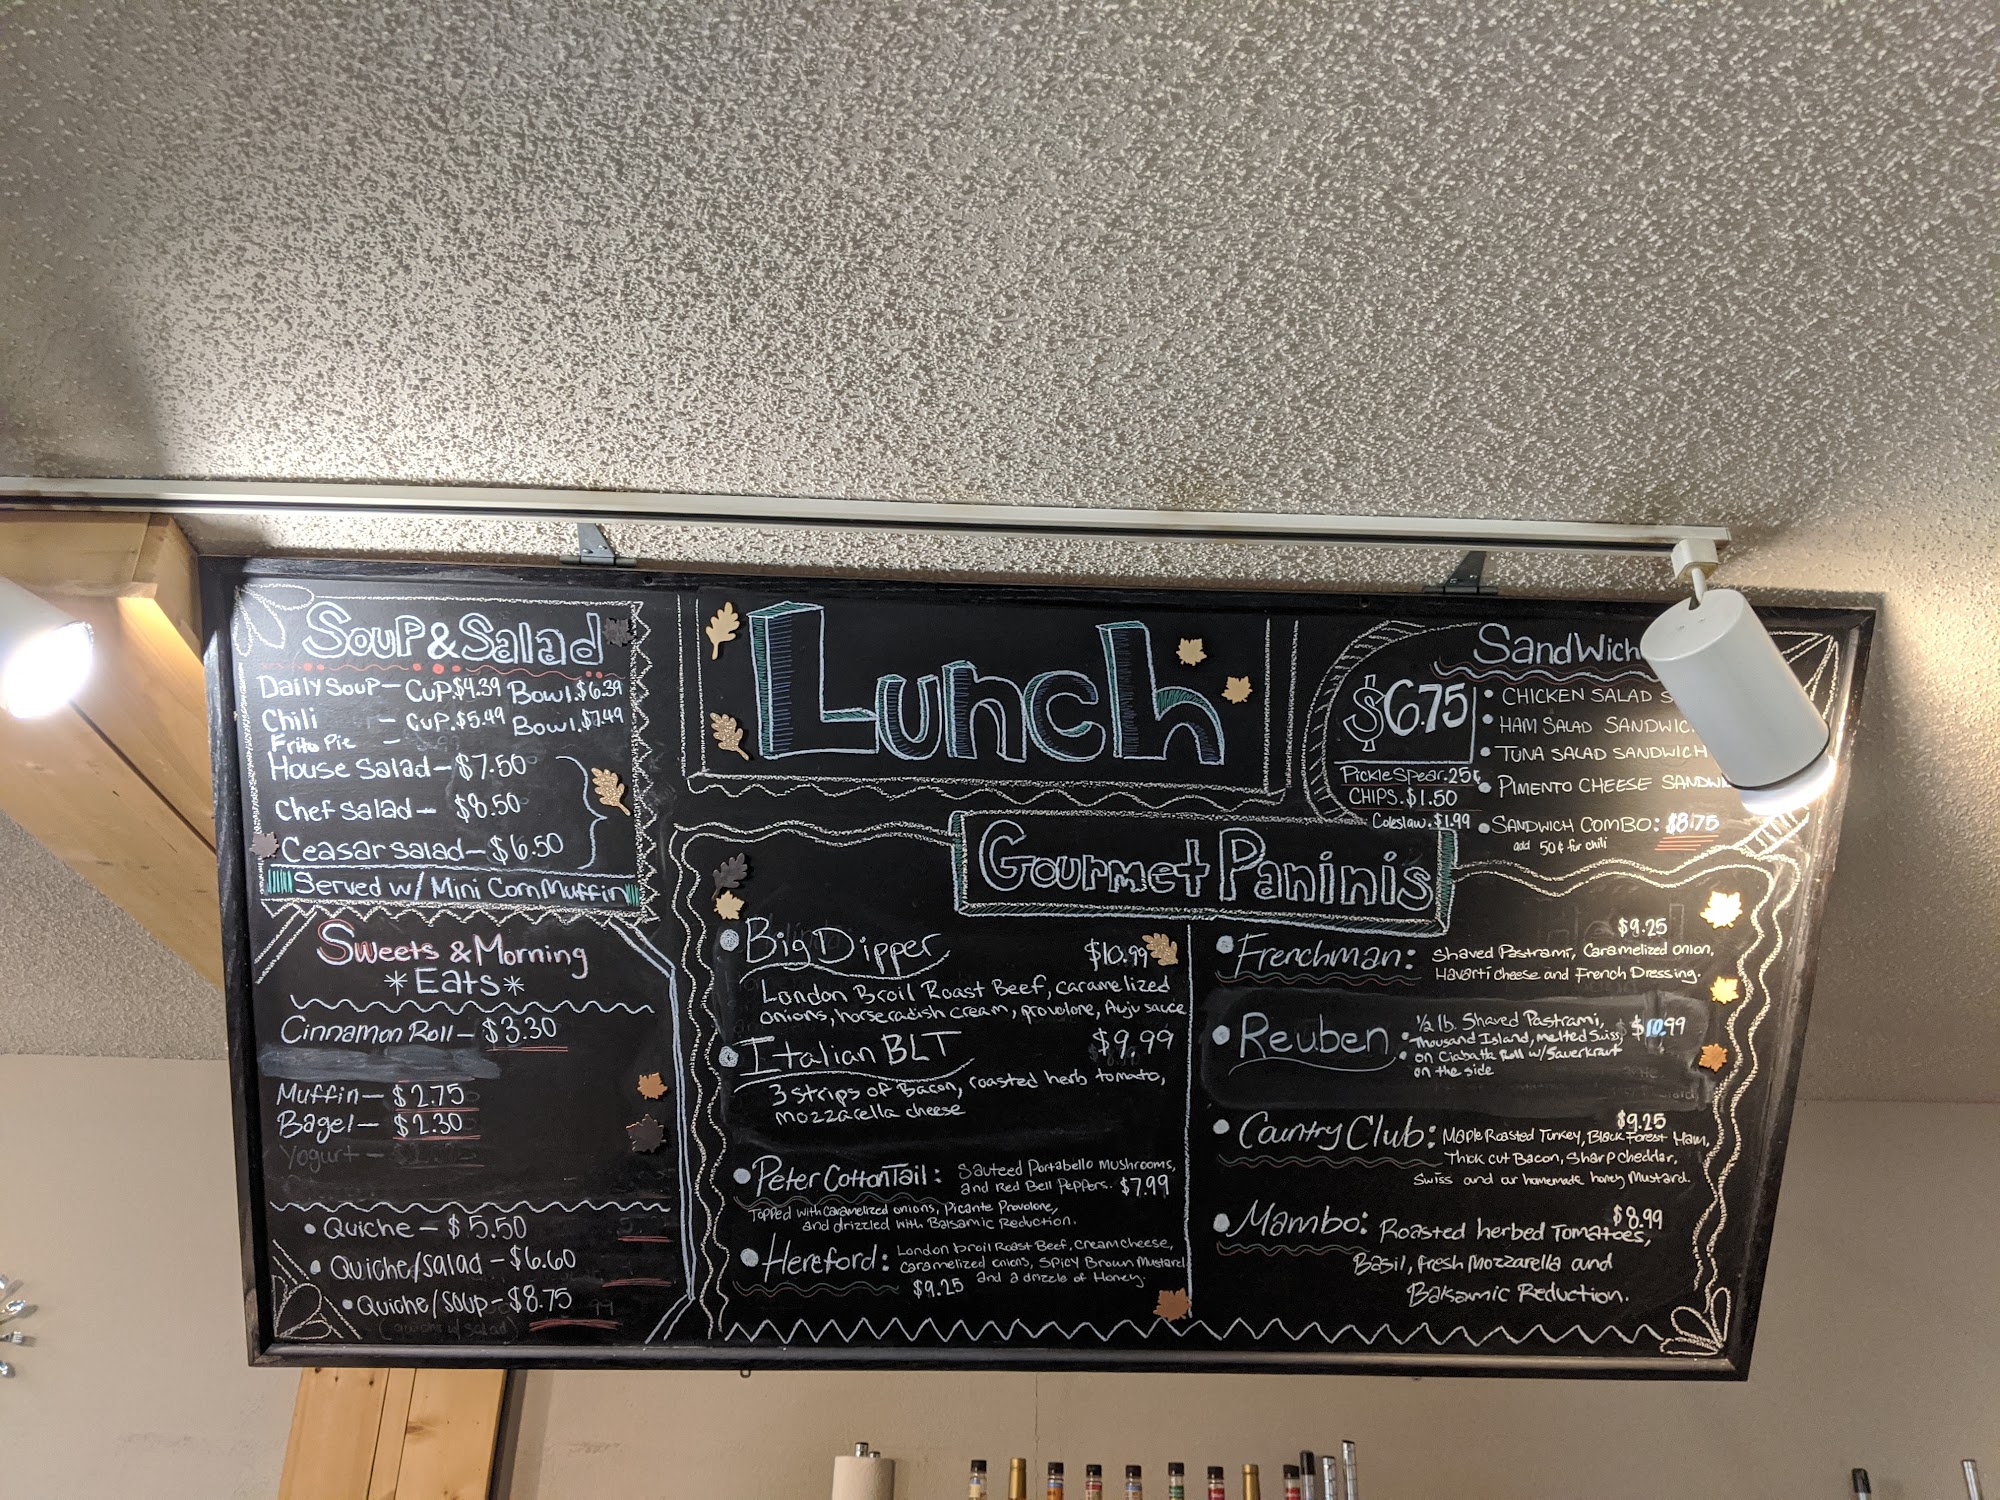 Lunch
Soup & Salad
Daily Soup – Cup.$4.39 Bowl.$6.39
Chili – Cup.$5.49 Bowl.$7.49
Frito Pie –
House Salad – $7.50
Chef Salad – $8.50
Ceasar Salad – $6.50
Served w/ Mini Corn Muffin
Sweets & Morning
*Eats*
Cinnamon Roll – $3.30
Muffin – $2.75
Bagel – $2.30
Yogurt –
• Quiche – $5.50
• Quiche/Salad – $6.60
• Quiche/Soup – $8.75
Sandwich
$6.75
Pickle Spear.25¢
CHIPS.$1.50
Coleslaw.$1.99
• CHICKEN SALAD
• HAM SALAD
• TUNA SALAD SANDWICH
• PIMENTO CHEESE
• SANDWICH COMBO: $8.75
add 50¢ for chili
Gourmet Paninis
• Big Dipper $10.99
London Broil Roast Beef, caramelized
onions, horseradish cream, provolone, Auju sauce
• Italian BLT $9.99
3 strips of Bacon, roasted herb tomato,
mozzarella cheese
• Peter CottonTail: Sauteed Portabello Mushrooms,
and Red Bell Peppers. $7.99
Topped with caramelized onions, Picante Provolone,
and drizzled with Balsamic Reduction.
• Hereford: London broil Roast Beef, Cream cheese,
caramelized onions, Spicy Brown Mustard
and a drizzle of Honey.
$9.25
$9.25
• Frenchman: Shaved Pastrami, Caramelized onion,
Havarti cheese and French Dressing.
• Reuben • 1/2 lb. Shaved Pastrami, $10.99
Thousand Island, melted Swiss,
• on Ciabatta Roll w/Sauerkraut
on the side
$9.25
• Country Club: Maple Roasted Turkey, Black Forest Ham,
Thick cut Bacon, Sharp Cheddar,
Swiss and our homemade honey Mustard.
$8.99
• Mambo: Roasted herbed Tomatoes,
Basil, fresh Mozzarella and
Balsamic Reduction.